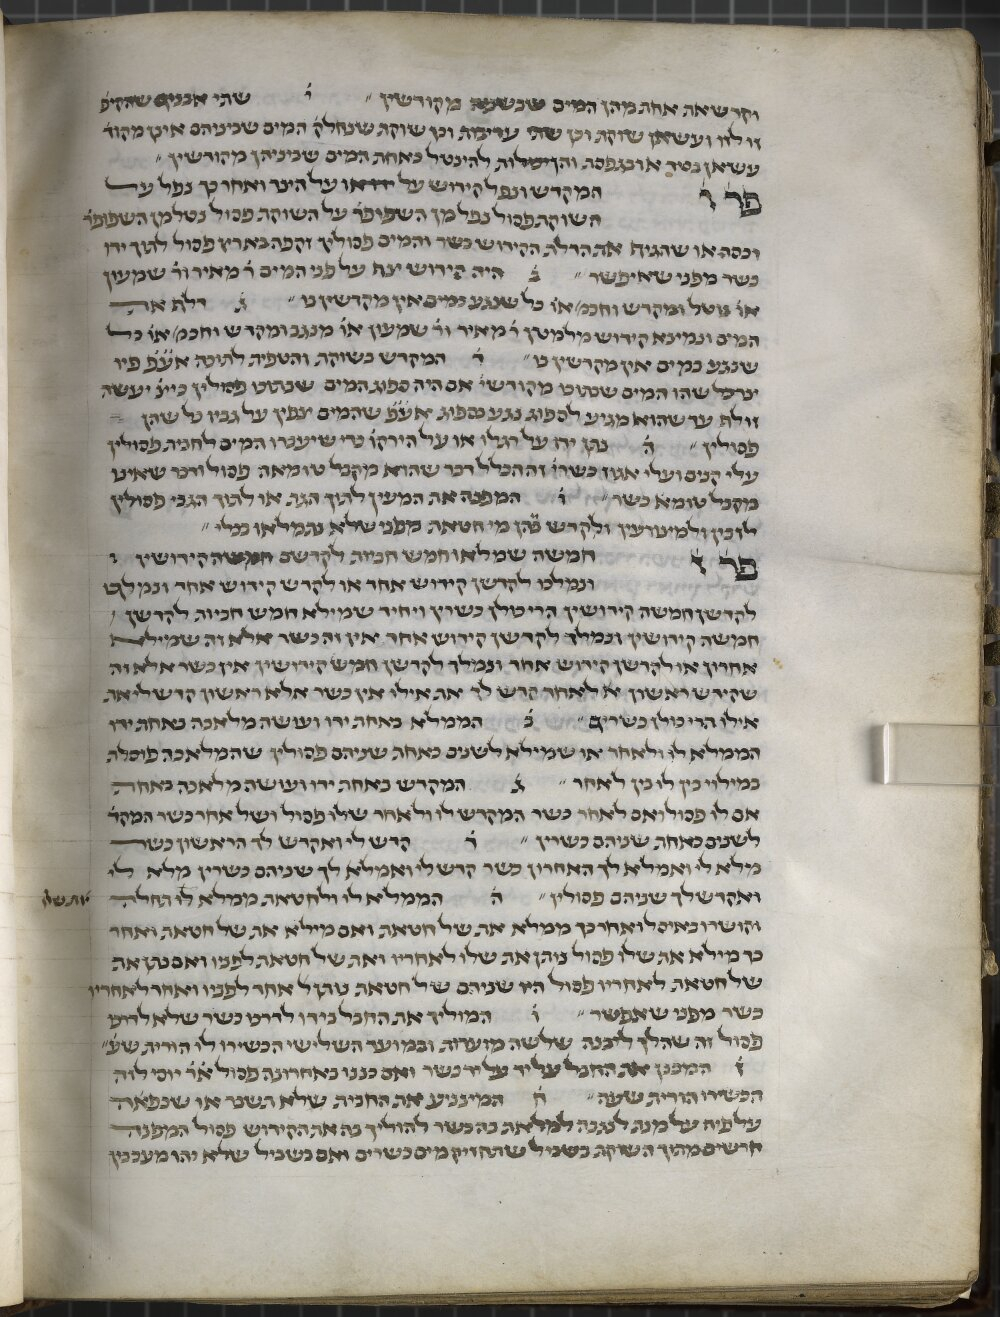 וקדש את אחת מהן המים שבשניה מקודשין ״ י̇ שתי אבנים שהקיפ̇
זו לזו ועשאן שוקת וכן שתי עריבות וכן שוקת שנחלקה המים שביניהם אינן מקוד̇
עשאן בסיד או בגפסס והן יכולות להינטל כאחת המים שביניהן מקודשין ״
פר ו̇ המקדש ונפל קידוש על ידו או על הצד ואחר כך נפל על
השוקת פסול נפל מן השפופר̇ על השוקת פסול נטל מן השפופר̇
וכסה או שהגיף את הדלת הקידוש כשר והמים פסולין זקפה בארץ פסול לתוך ידו
כשר מפני שאיפשר ״ ב̇ היה קידוש יצף על פני המים ר̇ מאיר ור̇ שמעון
או̇ נוטל ומקדש וחכמ̇ או̇ כל שנגע במים אין מקדשין בו ״ ג̇ זלף את
המים ונמצא קידוש מלמטן ר̇ מאיר ור̇ שמעון או̇ מנגב ומקדש וחכמ̇ או̇ כל
שנגע במים אין מקדשין בו ״ ד̇ המקדש בשוקת והטפיח לתוכה אע̇פ̇ פיו
צר כל שהו המים שבתוכו מקודשי̇ אם היה ספוג המים שבתוכו פסולין כיצ̇ יעשה
זולף עד שהוא מגיע לספוג נגע בספוג אע̇פ̇ שהמים צפין על גביו כל שהן
פסולין ״ ה̇ נתן ידו על רגלו או על הירקו̇ כדי שיעברו המים לחבית פסולין
עלי קנים ועלי אגוז כשרי̇ זה הכלל דבר שהוא מקבל טומאה פסול ודבר שאינו
מקבל טומא כשר ״ ו̇ המפנה את המעין לתוך הגת או לתוך הגבי פסולין
לזבין ולמצורעין ולקדש בהן מי חטאת מפני שלא נתמלאו בכלי ״
פר ז̇ חמשה שמלאו חמש חביות לקדשם חמשה קידושין
ונמלכו לקדשן קידוש אחד או לקדש קידוש אחד ונמלכו
לקדשן חמשה קידושין הרי כולן כשרין ויחיד שמילא חמש חביות לקדשן
חמשה קידושין ונמלך לקדשן קידוש אחד אין זה כשר אלא זה שמילא
אחרון או לקדשן קידוש אחד ונמלך לקדשן חמש קידושין אין כשר אלא זה
שקידש ראשון א̇ לאחר קדש לך את אילו אין כשר אלא ראשון קדש לי את
אילו הרי כולן כשרים ״ ב̇ הממלא באחת ידו ועושה מלאכה באחת ידו
הממלא לו ולאחר או שמילא לשנים כאחת שניהם פסולין שהמלאכה פוסלת
במילוי בין לו בין לאחר ״ ג̇ המקדש באחת ידו ועושה מלאכה באחת
אם לו פסול ואם לאחר כשר המקדש לו ולאחר שלו פסול ושל אחר כשר המקד̇
לשנים כאחת שניהם כשרין ״ ד̇ קדש לי ואקדש לך הראשון כשר
מלא לי ואמלא לך האחרון כשר קדש לי ואמלא לך שניהם כשרין מלא לי
ואקדש לך שניהם פסולין ״ ה̇ הממלא לו ולחטאת ממלא לו תחלה
את שלו
וקושרו באיסל ואחר כך ממלא את של חטאת ואם מילא את של חטאת ואחר
כך מילא את שלו פסול נותן את שלו לאחריו ואת של חטאת לפניו ואם נתן את
של חטאת לאחריו פסול היו שניהם של חטאת נותן ל אחד לפניו ואחד לאחריו
כשר מפני שאפשר ״ ו̇ המוליך את החבל בידו לדרכו כשר שלא לדרכו
פסול זה שהלך ליבנה שלשה מועדות ובמועד השלישי הכשירו לו הורית שע̇ ״
ז̇ המכנן את החבל על יד על יד כשר ואם כננו באחרונה פסול א̇ר̇ יוסי לזה
הכשירו הורית שעה ״ ח̇ המצניע את החבית שלא תשבר או שכפאה
על פיה על מנת לנגבה למלאת בה כשר להוליך בה את הקידוש פסול המפנה
חרסים מתוך השוקת בשביל שתחזיק מים כשרים ואם בשביל שלא יהו מעכבין